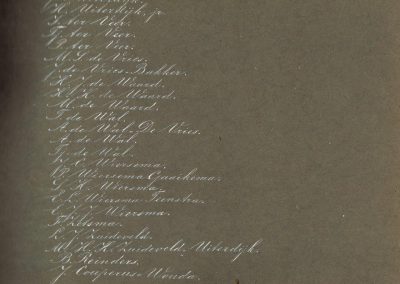 H. Uiterdijk, jr.
J. ter Veer.
G. ter Veer.
P. ter Veer.
M. J. de Vries.
J. de Vries-Bakker.
H. J. de Waard.
K. H. de Waard.
M. de Waard.
J. de Wal.
A. de Wal-De Vries.
A. de Wal.
G. de Wal.
L. C. Wiersema.
P. Wiersema-Gaaikema.
L. H. Wiersma.
E. L. Wiersma-Feenstra.
G. J. J. Wiersma.
F. Zetsma.
L. J. Zuideveld.
M. H. H. Zuideveld-Uiterdijk.
B. Reinders.
J. Couperus-Wouda.